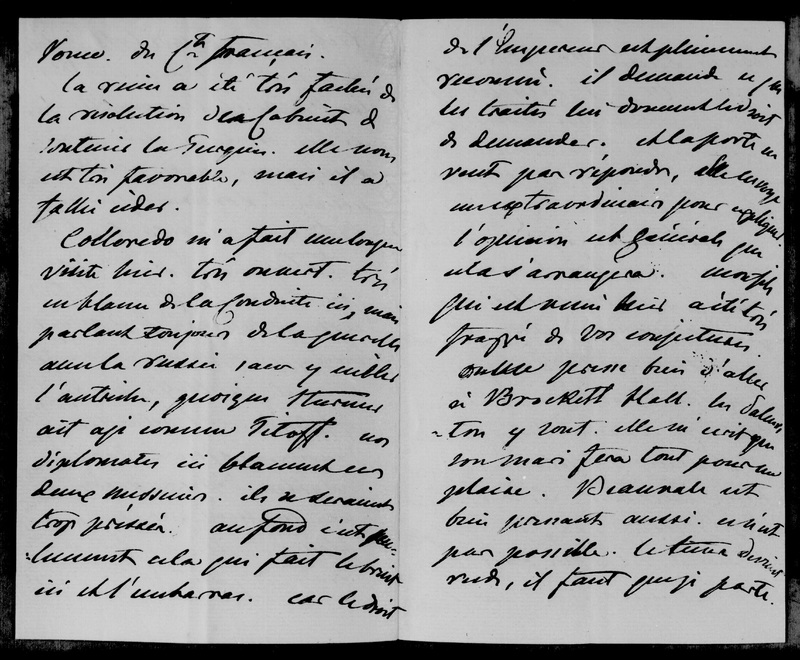 Rome. du Cte français.
La reine a été très fachée de
la résolution du Cabinet de
soutenir la Turquie. elle nous
est très favorable, mais il a
fallu céder.
Colloredo m'a fait une longue
visite hier. très ouvert. très
en blame de la conduite ici, mais
parlant toujours de la querelle
avec la russie, sans y mêler
l'autriche, quoique Sturmer
ait agi comme Titoff. nos
diplomates ici blament ces
deux messieurs. ils se seraient
trop pressés. au fond c'est seu-
-lement cela qui fait le bruit
ici et l'embarras. car le droit
de l'Empereur est pleinement
reconnu. il demande ce que
les traités lui donnent le droit
de demander. et la porte ne
veut pas répondre, elle envoye
un extraordinaire pour expliquer.
l'opinion est générale que
cela s'arrangera.
qui est venu hier a été très
frappé de vos conjectures.
presse bien d'aller
à Brockett Hall. les Palmers-
-ton y sont. elle m'écrit que
son mari fera tout pour me
plaire. Beauvale est
bien pressant aussi. ce n'est
pas possible. le tems devient
rude, il faut que je parte.